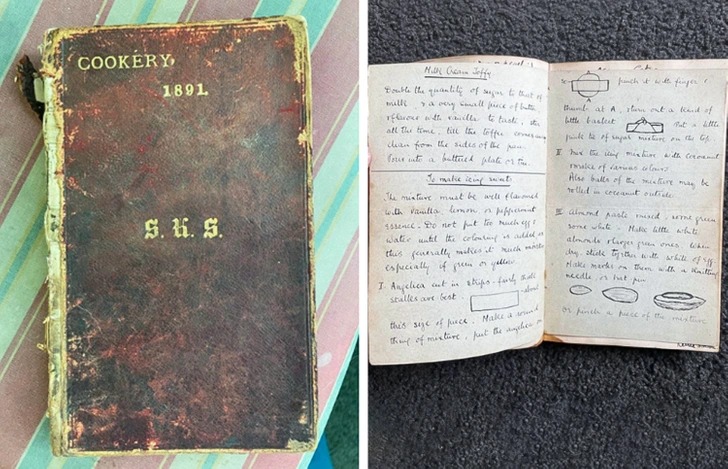 COOKERY,
1891.
S. K. S.
Milk Cream Toffy
Double the quantity of sugar to that of
milk, & a very small piece of butter
flavour with vanilla to taste, stir
all the time, till the toffee comes
clean from the sides of the pan.
Pour into a buttered plate or tin.
To make icing sweets
The mixture must be well flavoured
with Vanilla, lemon, or peppermint
essence. Do not put too much egg &
water until the colouring is added as
this generally makes it much moister
especially if green or yellow.
I. Angelica cut in strips - fairly thick
stalks are best. about
this size of piece. Make a round
thing of mixture, put the angelica
pinch it with finger &
thumb at A, turn out a kind of
little basket Put a little
pink tip of sugar mixture on the top.
II Mix the icing mixture with cocoanut
make of various colours
Also balls of the mixture may be
rolled in cocoanut outside.
III Almond paste mixed, some green
some white. Make little white
almonds & larger green ones. When
dry, stick together with white of egg
Make marks on them with a Knitting
needle, or hat pin
or pinch a piece of the mixture